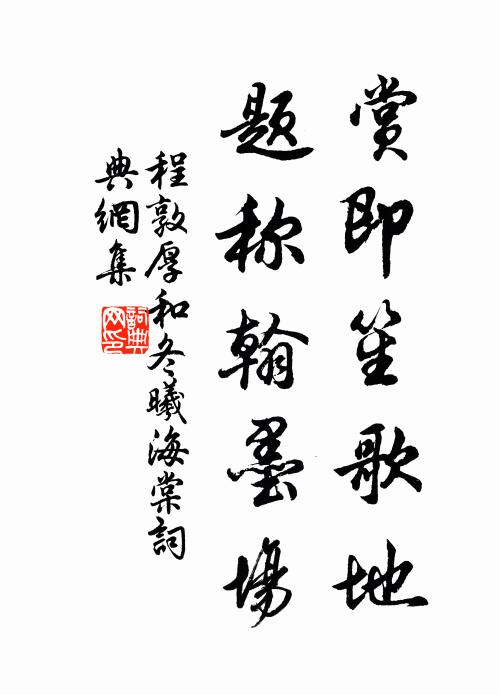 赏即笙歌地
题称翰墨场
程敦厚和冬曦海棠詞
典網集
詞典网印